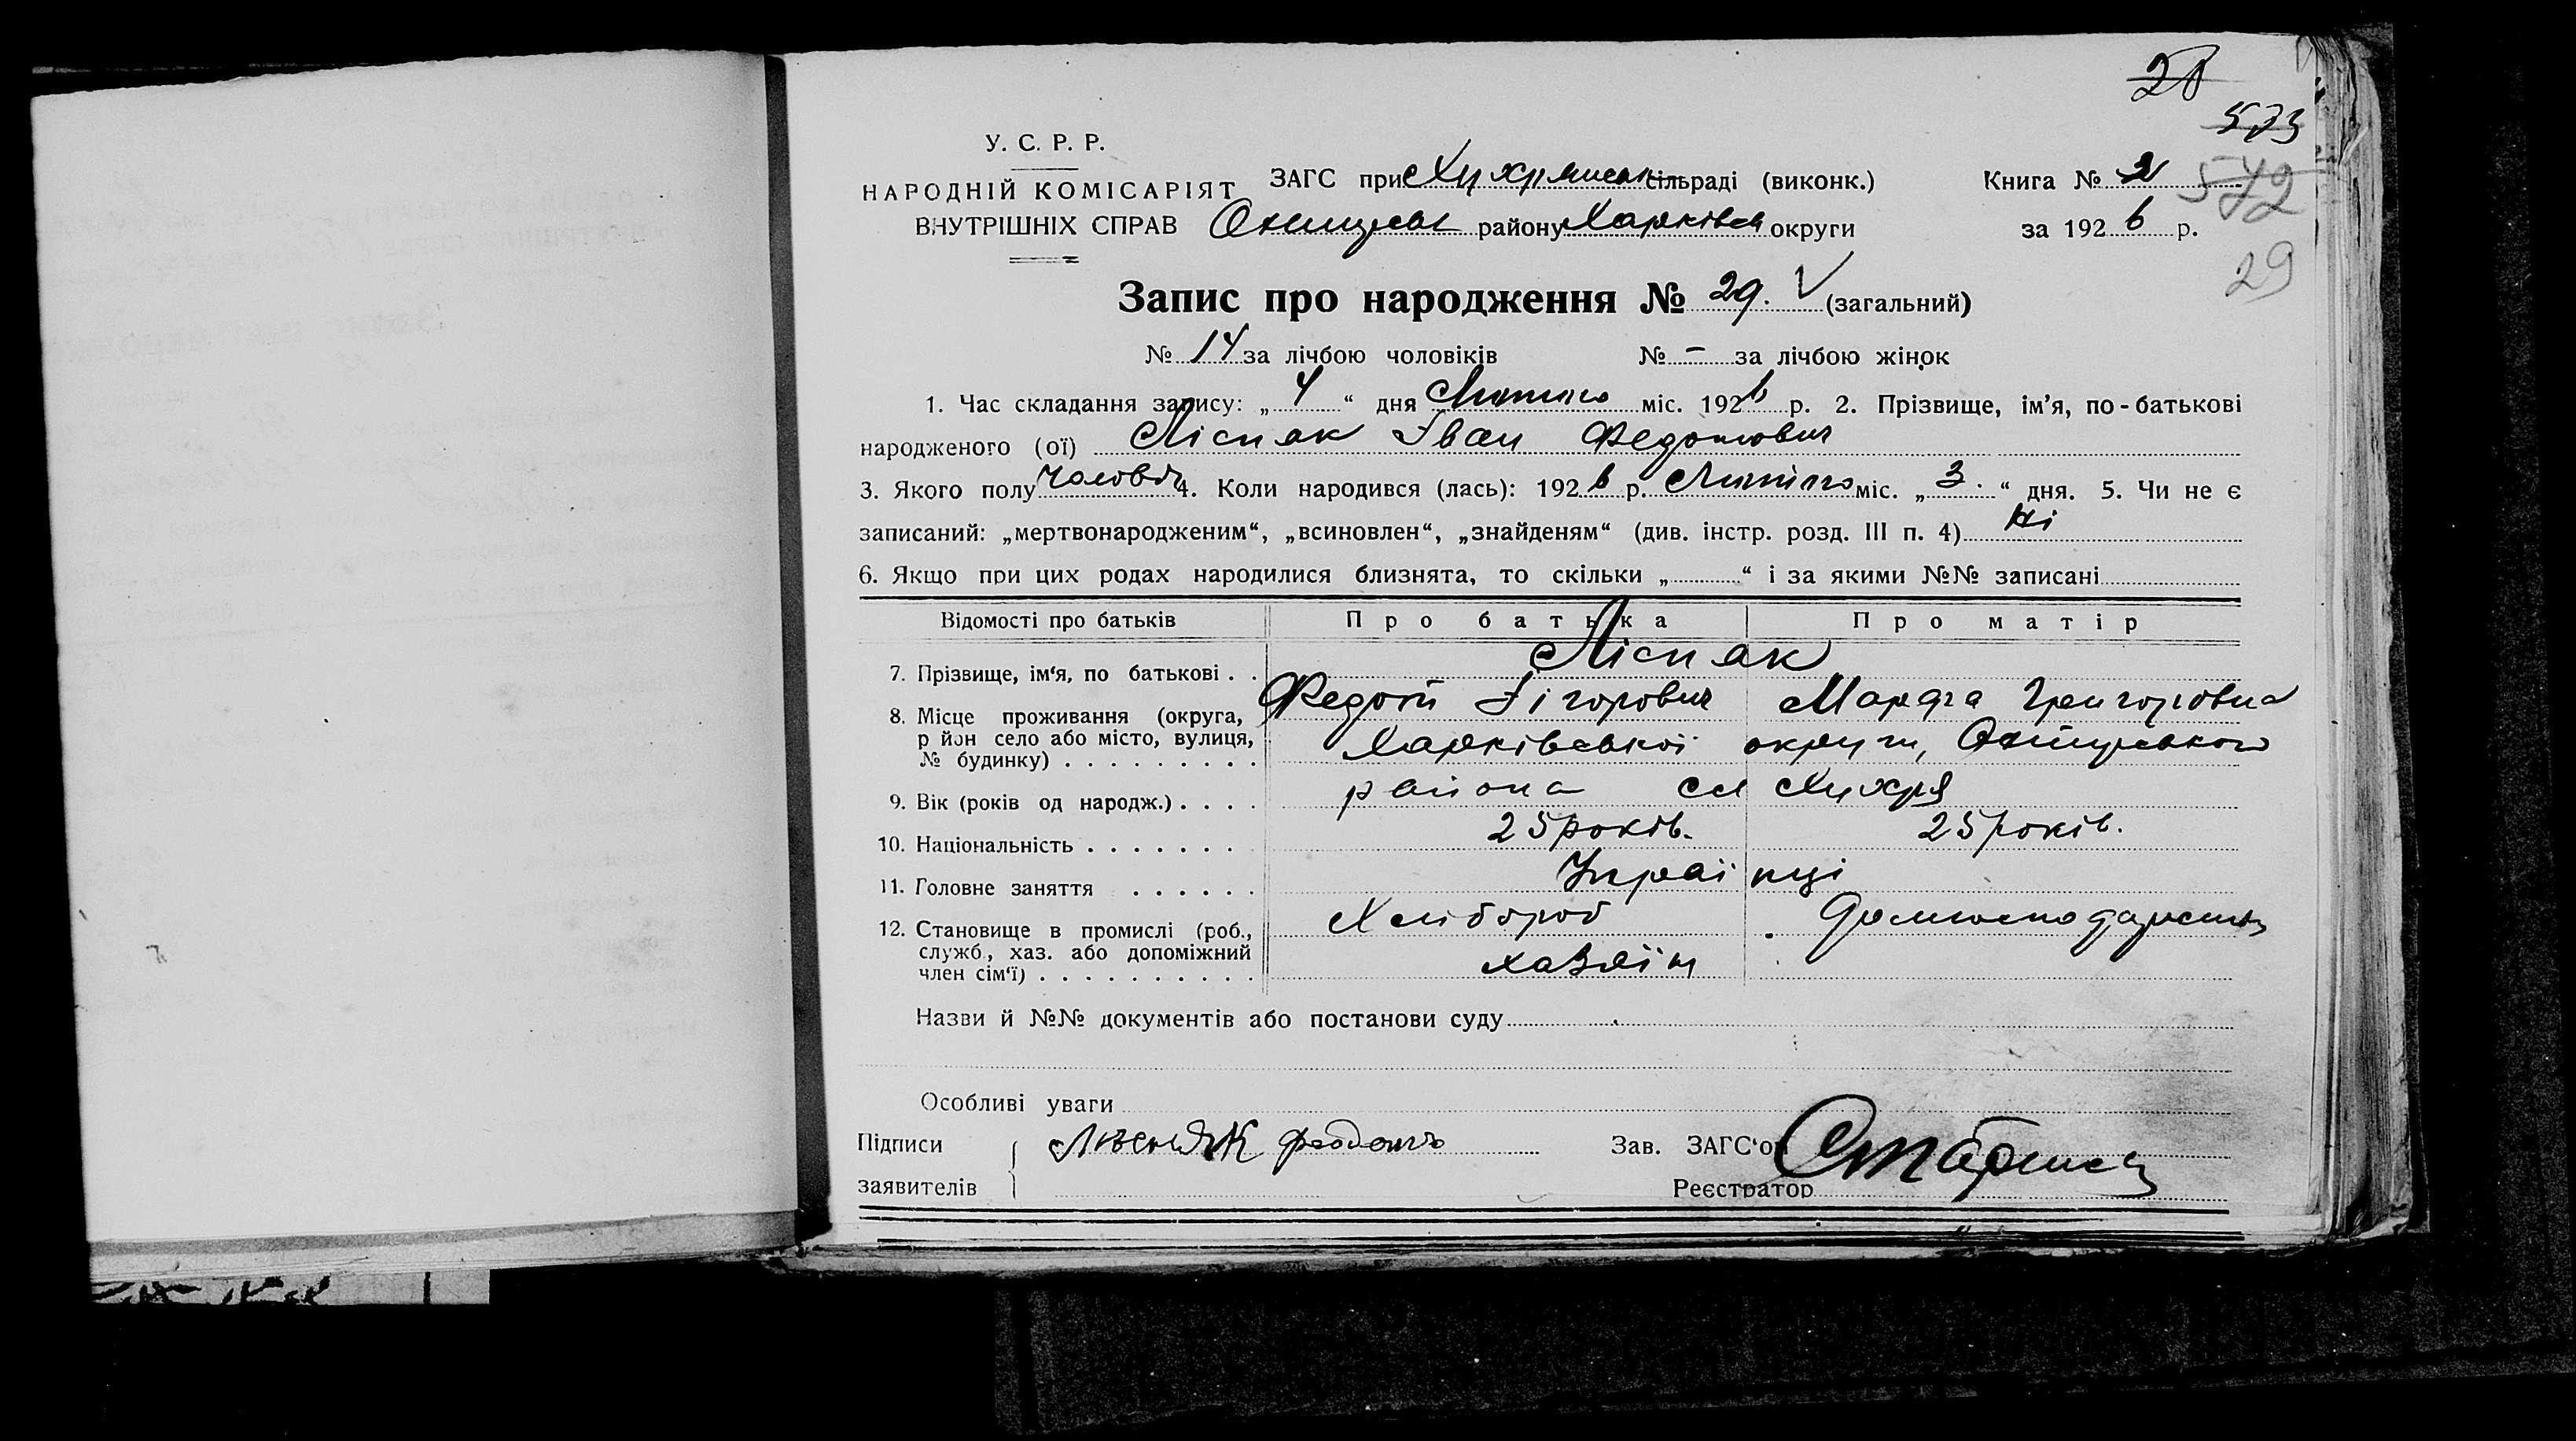 28
573
У. С. Р. Р.
572
НАРОДНІЙ КОМІСАРІЯТ ЗАГС при Хухрянськ сільраді (виконк.) Книга № 2
ВНУТРІШНІХ СПРАВ Охтирськ району Харківськ округи за 1926 р.
29
Запис про народження № 29. (загальний)
№ 14 за лічбою чоловіків № - за лічбою жінок
1. Час складання запису: „ 4 “ дня Лютого міс. 1926 р. 2. Прізвище, ім’я, по-батькові
народженого (ої) Лісняк Іван Федотович
3. Якого полу Чоловіч 4. Коли народився (лась): 1926 р. Лютого міс. „ 3. “ дня. 5. Чи не є
записаний: „мертвонародженим“, „всиновлен“, „знайденям“ (див. інстр. розд. III п. 4) Ні
6. Якщо при цих родах народилися близнята, то скільки „ “ і за якими №№ записані
Відомості про батьків Про батька Про матір
7. Прізвище, ім‘я, по батькові . . Лісняк
Федот Єгорович Марфа Григоровна
8. Місце проживання (округа,
р йон село або місто, вулиця, Харківської округи, Охтирського
№ будинку) . . . . . . . . .
9. Вік (років од народж.) . . . . района сл Хухря
10. Національність . . . . . . . 25 років. 25 років.
11. Головне заняття . . . . . . Украї нці
12. Становище в промислі (роб., Хлібороб
служб., хаз. або допоміжний
член сім‘ї) . . . . . . . . . . хазяїн
Назви й №№ документів або постанови суду
Особливі уваги
Підписи Лѣснякъ Федотъ Зав. ЗАГС‘ом
заявителів Реєстратор